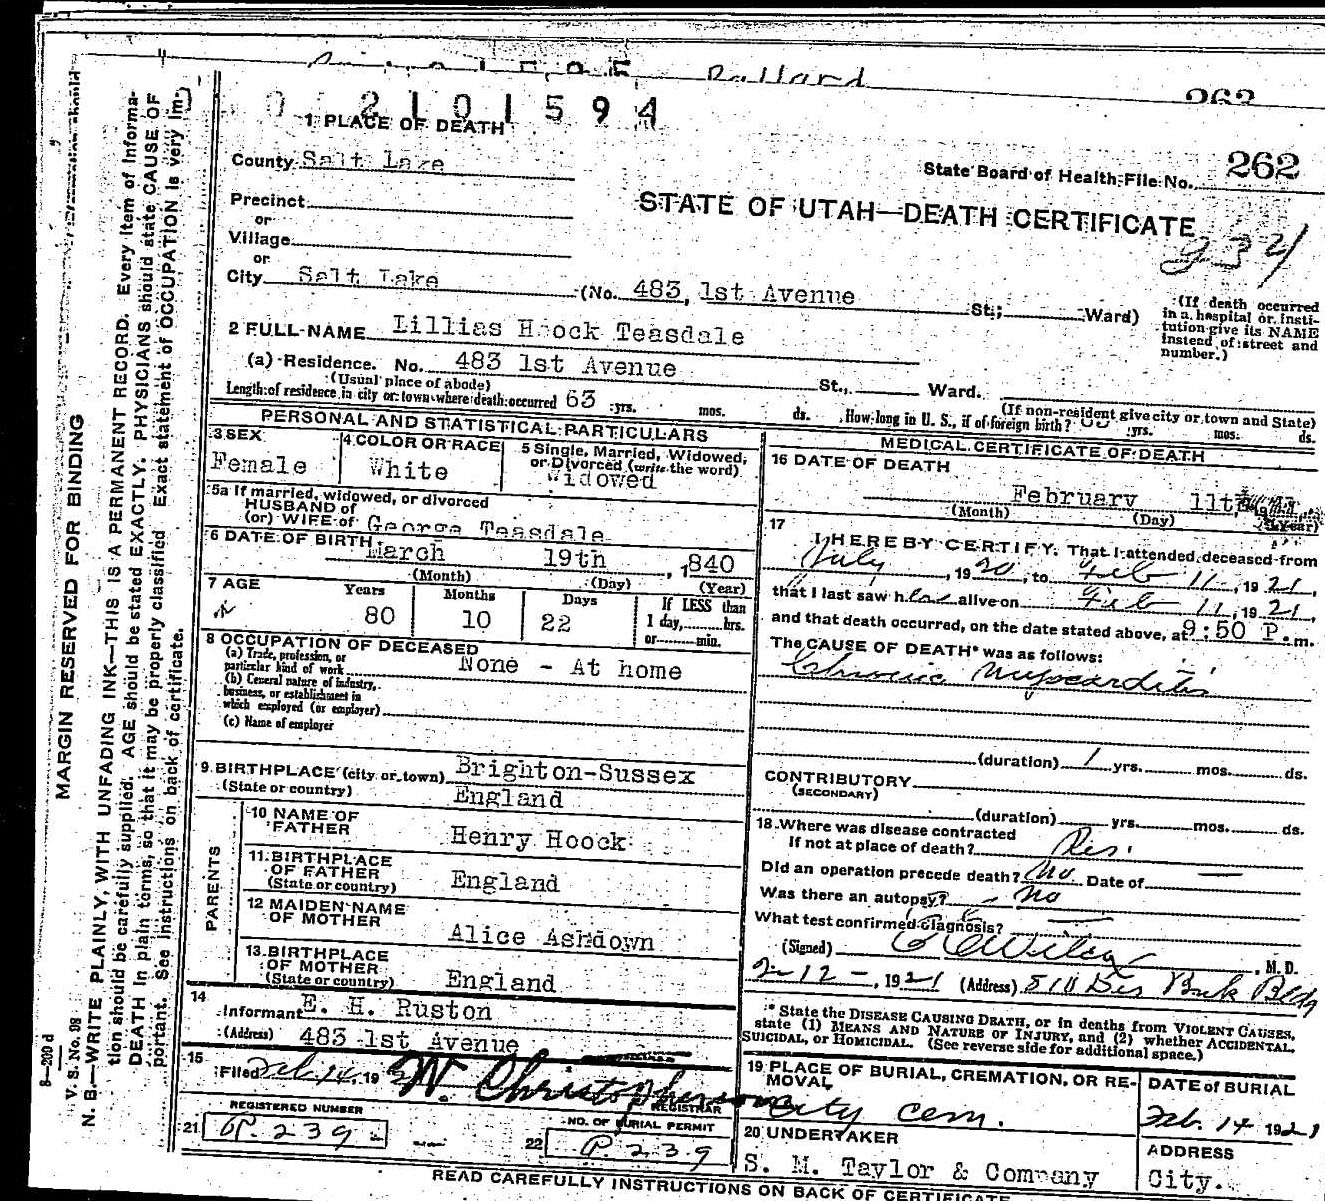 Ballard
262
2101594
1 PLACE OF DEATH
County Salt Lake
State Board of Health File No. 262
Precinct
STATE OF UTAH—DEATH CERTIFICATE
or
Village
934
or
City Salt Lake (No. 483, 1st Avenue St.; Ward)
(If death occurred in a hospital or institution give its NAME instead of street and number.)
2 FULL NAME Lillias Hoock Teasdale
(a) Residence. No. 483 1st Avenue St., Ward.
(Usual place of abode) (If non-resident give city or town and State)
Length of residence in city or town where death occurred 63 yrs. mos. ds. How long in U. S., if of foreign birth? yrs. mos. ds.
PERSONAL AND STATISTICAL PARTICULARS
3 SEX
Female
4 COLOR OR RACE
White
5 Single, Married, Widowed, or Divorced (write the word)
Widowed
5a If married, widowed, or divorced
HUSBAND of
(or) WIFE of George Teasdale
6 DATE OF BIRTH March 19th, 1840
(Month) (Day) (Year)
7 AGE Years Months Days If LESS than
80 10 22 1 day, hrs.
or min.
8 OCCUPATION OF DECEASED
(a) Trade, profession, or
particular kind of work None - At home
(b) General nature of industry,
business, or establishment in
which employed (or employer)
(c) Name of employer
9 BIRTHPLACE (city or town) Brighton-Sussex
(State or country) England
PARENTS
10 NAME OF FATHER Henry Hoock
11 BIRTHPLACE OF FATHER (State or country) England
12 MAIDEN NAME OF MOTHER Alice Ashdown
13 BIRTHPLACE OF MOTHER (State or country) England
14
Informant E. H. Ruston
(Address) 483 1st Avenue
15
Filed Feb. 14, 19 W. Christopherson
REGISTRAR
REGISTERED NUMBER
21 P. 239
NO. OF BURIAL PERMIT
22 P. 239
MEDICAL CERTIFICATE OF DEATH
16 DATE OF DEATH
February 11th
(Month) (Day) (Year)
17
I HEREBY CERTIFY, That I attended deceased from
July, 1920, to Feb 11, 1921,
that I last saw her alive on Feb 11, 1921,
and that death occurred, on the date stated above, at 9:50 P. m.
The CAUSE OF DEATH* was as follows:
Chronic Myocarditis
(duration) 1 yrs. mos. ds.
CONTRIBUTORY
(SECONDARY)
(duration) yrs. mos. ds.
18 Where was disease contracted
If not at place of death? Res.
Did an operation precede death? No Date of —
Was there an autopsy? - No
What test confirmed diagnosis? —
(Signed) Wilcox, M. D.
2-12-, 1921 (Address) 510 Des Bank Bldg
* State the DISEASE CAUSING DEATH, or in deaths from VIOLENT CAUSES,
state (1) MEANS AND NATURE OF INJURY, and (2) whether ACCIDENTAL,
SUICIDAL, or HOMICIDAL. (See reverse side for additional space.)
19 PLACE OF BURIAL, CREMATION, OR REMOVAL
City Cem.
DATE of BURIAL
Feb. 14 1921
20 UNDERTAKER
S. M. Taylor & Company
ADDRESS
City.
READ CAREFULLY INSTRUCTIONS ON BACK OF CERTIFICATE
MARGIN RESERVED FOR BINDING
V. S. No. 98
N. B.—WRITE PLAINLY, WITH UNFADING INK—THIS IS A PERMANENT RECORD. Every item of informa-
tion should be carefully supplied. AGE should be stated EXACTLY. PHYSICIANS should state CAUSE OF
DEATH in plain terms, so that it may be properly classified. Exact statement of OCCUPATION is very im-
portant. See instructions on back of certificate.